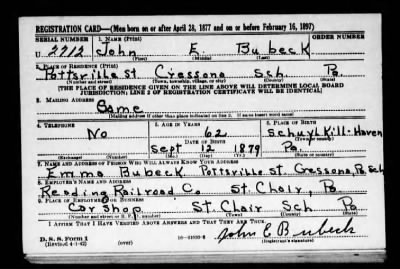 REGISTRATION CARD—(Men born on or after April 28, 1877 and on or before February 16, 1897)
SERIAL NUMBER 1. NAME (Print) ORDER NUMBER
U 2212 John E. Bubeck
(First) (Middle) (Last)
2. PLACE OF RESIDENCE (Print)
Pottsville St. Cressona Sch. Pa.
(Number and street) (Town, township, village, or city) (County) (State)
[THE PLACE OF RESIDENCE GIVEN ON THE LINE ABOVE WILL DETERMINE LOCAL BOARD
JURISDICTION; LINE 2 OF REGISTRATION CERTIFICATE WILL BE IDENTICAL]
3. MAILING ADDRESS
Same
[Mailing address if other than place indicated on line 2. If same insert word same]
4. TELEPHONE 5. AGE IN YEARS 6. PLACE OF BIRTH
No 62 Schuylkill-Haven
DATE OF BIRTH (Town or county)
Sept 12 1879 Pa.
(Exchange) (Number) (Mo.) (Day) (Yr.) (State or country)
7. NAME AND ADDRESS OF PERSON WHO WILL ALWAYS KNOW YOUR ADDRESS
Emma Bubeck Pottsville St. Cressona, Pa. Sch
8. EMPLOYER'S NAME AND ADDRESS
Reading Railroad Co St. Clair, Pa
9. PLACE OF EMPLOYMENT OR BUSINESS
Car Shop St. Clair Sch Pa
(Number and street or R. F. D. number) (Town) (County) (State)
I AFFIRM THAT I HAVE VERIFIED ABOVE ANSWERS AND THAT THEY ARE TRUE.
D. S. S. Form 1
(Revised 4-1-42) (over) John E Bubeck
(Registrant's signature)